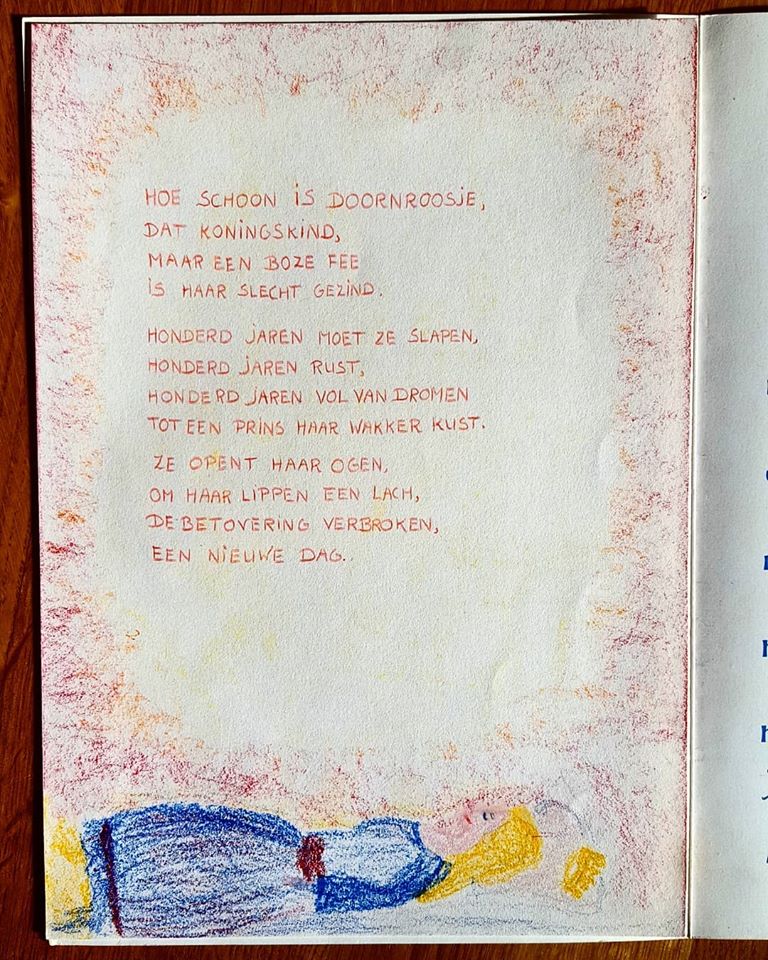 HOE SCHOON IS DOORNROOSJE,
DAT KONINGSKIND,
MAAR EEN BOZE FEE
IS HAAR SLECHT GEZIND.
HONDERD JAREN MOET ZE SLAPEN,
HONDERD JAREN RUST,
HONDERD JAREN VOL VAN DROMEN
TOT EEN PRINS HAAR WAKKER KUST.
ZE OPENT HAAR OGEN,
OM HAAR LIPPEN EEN LACH,
DE BETOVERING VERBROKEN,
EEN NIEUWE DAG..